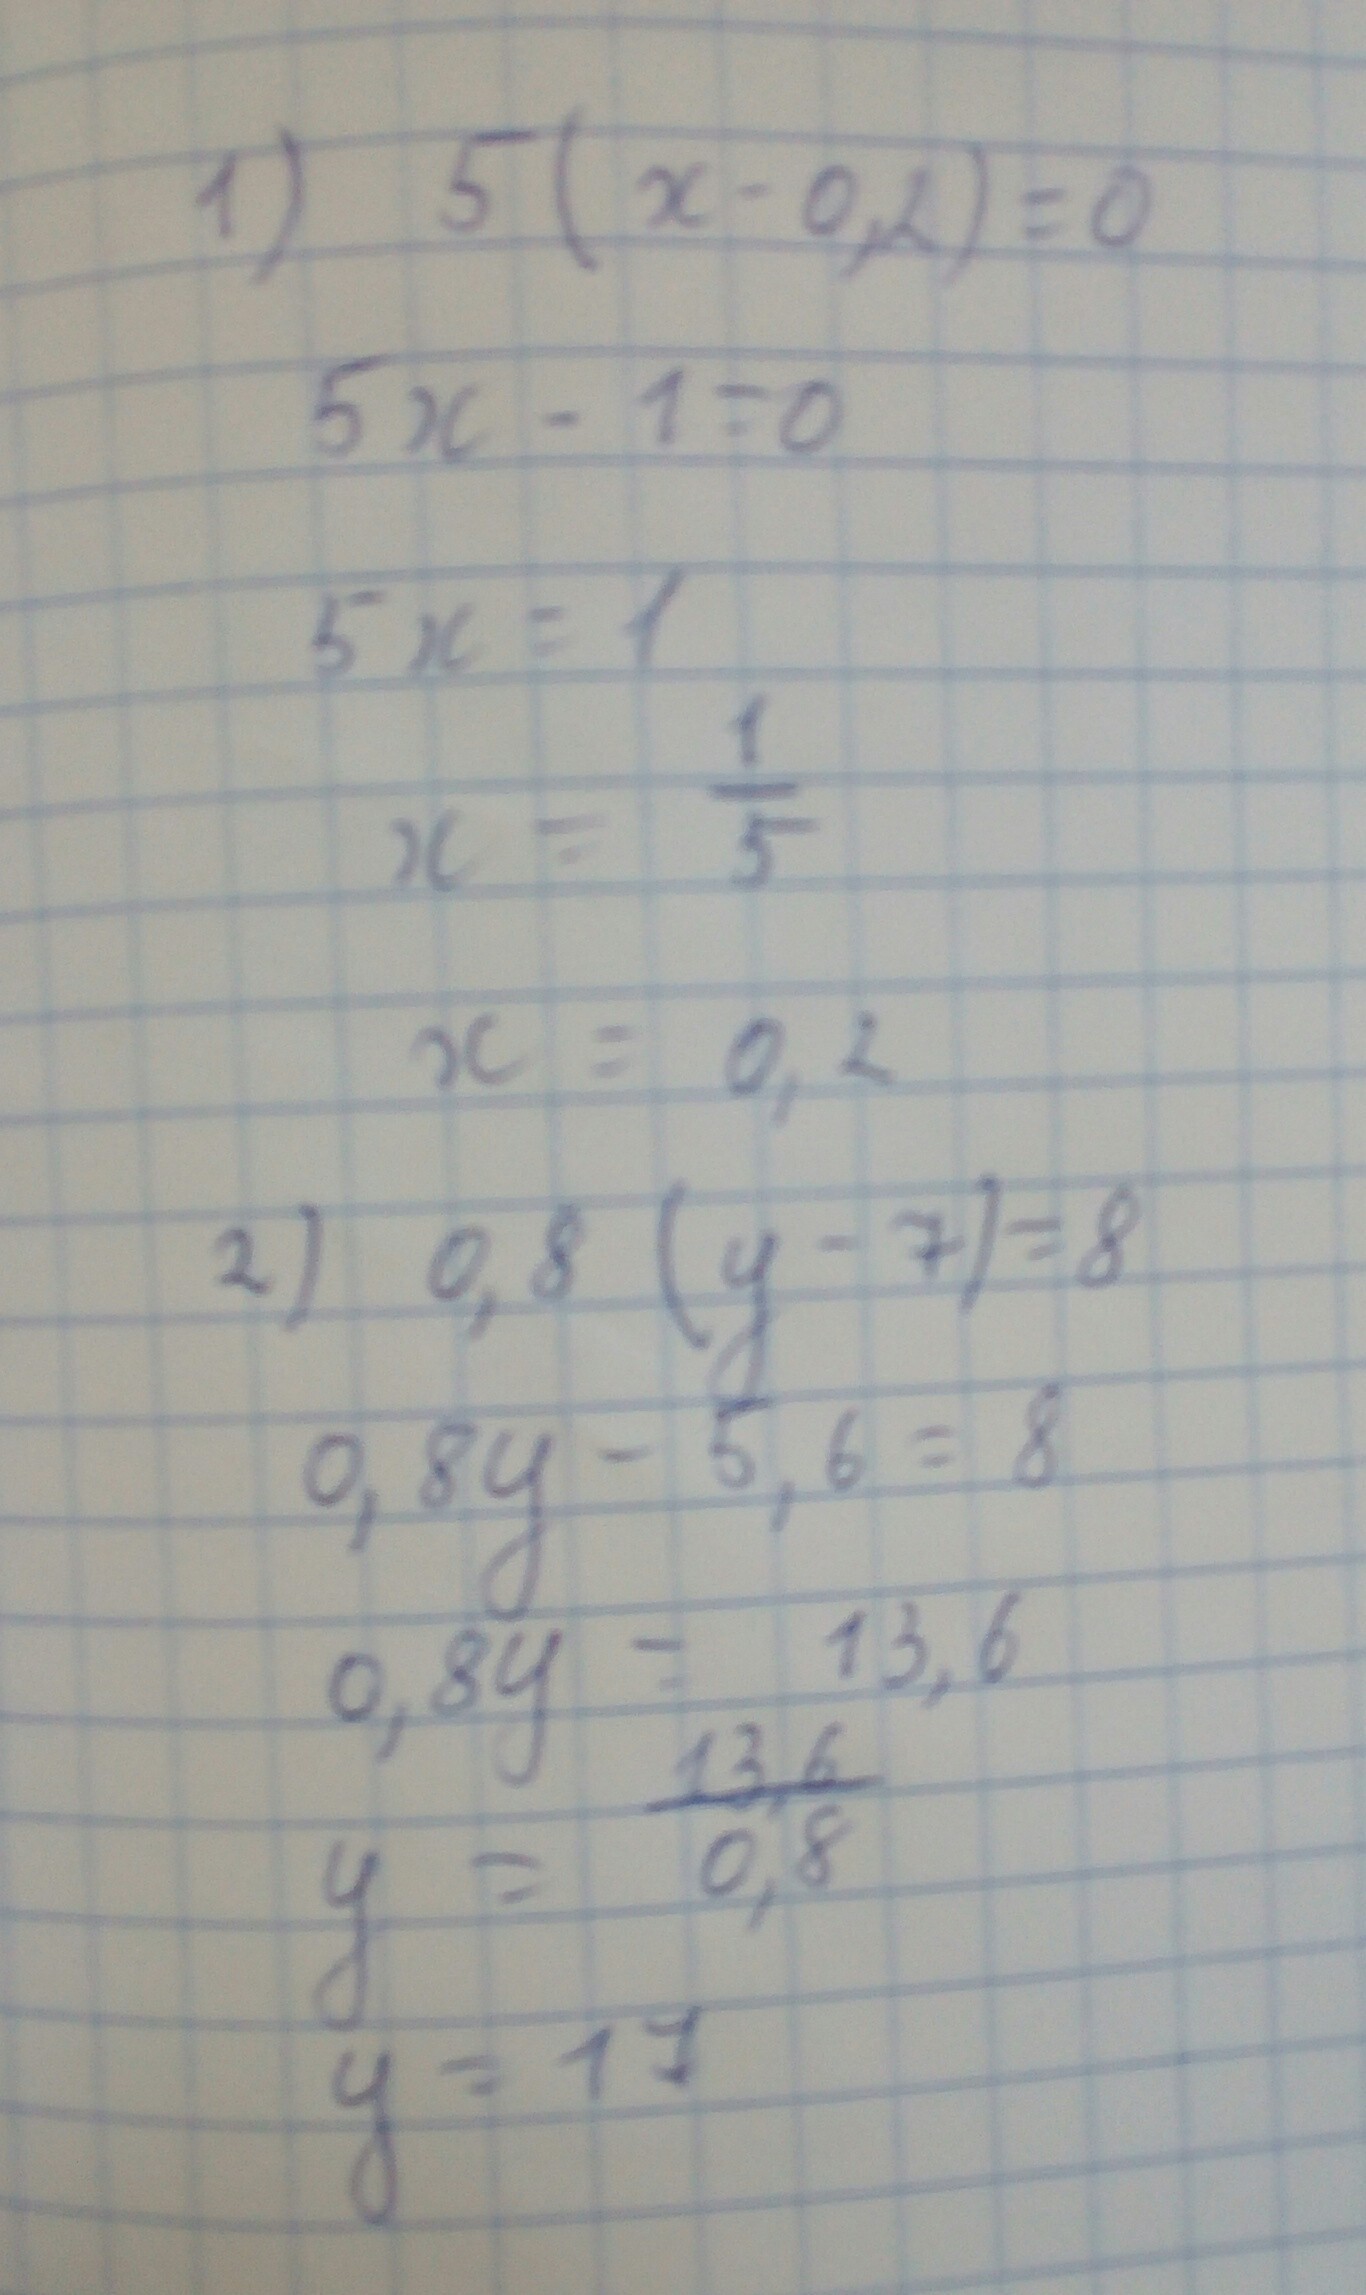 1) 5(x-0,2)=0
5x-1=0
5x=1
x=1/5
x=0,2
2) 0,8(y-7)=8
0,8y-5,6=8
0,8y=13,6
y=13,6/0,8
y=17